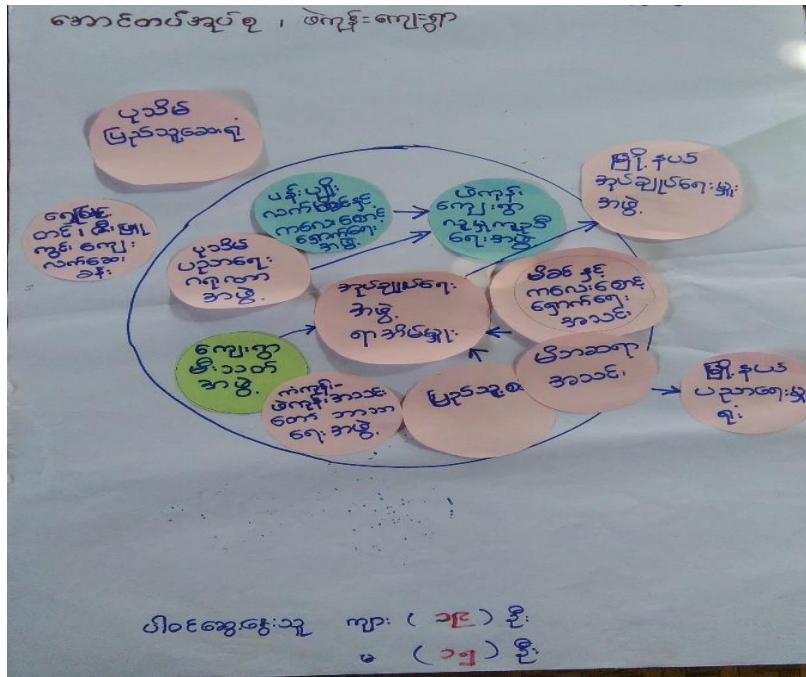 အောင်တပ်အုပ်စု ၊ ဖဲကုန်းကျေးရွာ
ပုသိမ်
ပြည်သူ့ဆေးရုံ
တင်၊ ထီးဖြူ
ကွင်း ကျေး
လက်ဆေး
ခန်း
ပန်းပျိုး
လက်
ကလေးစောင့်
ရှောက်ရေး
အဖွဲ့
ဖဲကုန်း
ကျေးရွာ
လူမှုကူညီ
ရေးအဖွဲ့
မြို့နယ်
အုပ်ချုပ်ရေးမှူး
အဖွဲ့
ပုသိမ်
ပညာရေး
အဖွဲ့
အုပ်ချုပ်ရေး
အဖွဲ့
ရာအိမ်မှူး
မိခင်နှင့်
ကလေးစောင့်
ရှောက်ရေး
အသင်း
ကျေးရွာ
မီးသတ်
အဖွဲ့
ဖဲကုန်းအသင်း
တော် ဘာသာ
ရေးအဖွဲ့
ပြည်သူ့စစ်
မိဘဆရာ
အသင်း
မြို့နယ်
ပညာရေးမှူး
ရုံး
ပါဝင်ဆွေးနွေးသူ ကျား ( ၁၉ ) ဦး
မ ( ၁၅ ) ဦး